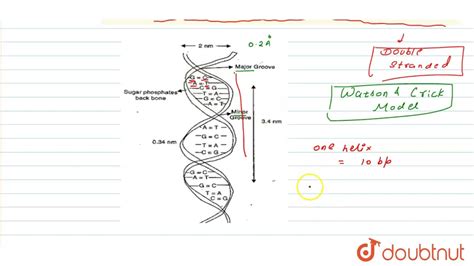 2 nm
0.2 A°
Major Groove
G = C
T = A
C = G
A = T
Sugar phosphates
back bone
Minor
Groove
A = T
3.4 nm
0.34 nm
T = A
C = G
G = C
A = T
G = C
T = A
C = G
Double
Stranded
Watson & Crick
Model
one helix
= 10 bp
doubtnut